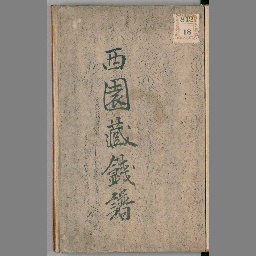 西園藏錢譜
18